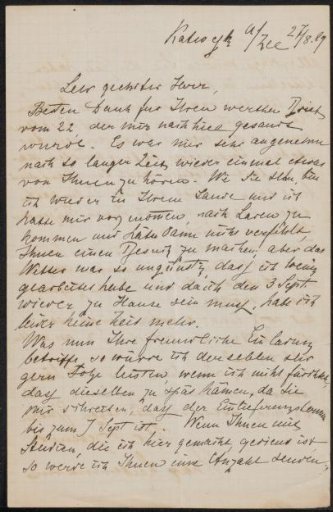 Katwyk a/Zee 27/8.89
Sehr geehrter Herr,
Besten Dank für Ihren werthen Brief
vom 22, der mir nach hier gesandt
wurde. Es war mir sehr angenehm
nach so langer Zeit, wieder einmal etwas
von Ihnen zu hören. Wie Sie sehn, bin
ich wieder in Ihrem Lande und ich
hatte mir vorgenommen, nach Laren zu
kommen und hätte dann nicht verfehlt,
Ihnen einen Besuch zu machen, aber das
Wetter war so ungünstig, dass ich wenig
gearbeitet habe und da ich den 3 Sept.
wieder zu Hause sein muss, habe ich
leider keine Zeit mehr.
Was nun Ihre freundliche Einladung
betrifft, so würde ich derselben sehr
gern Folge leisten, wenn ich nicht fürchtete,
dass dieselben zu spät kämen, da Sie
mir schreiben, dass der Einlieferungstermin
bis zum 7 Sept ist. Wenn Ihnen mit
Studien, die ich hier gemacht, gedient ist
so werde ich Ihnen eine Anzahl senden